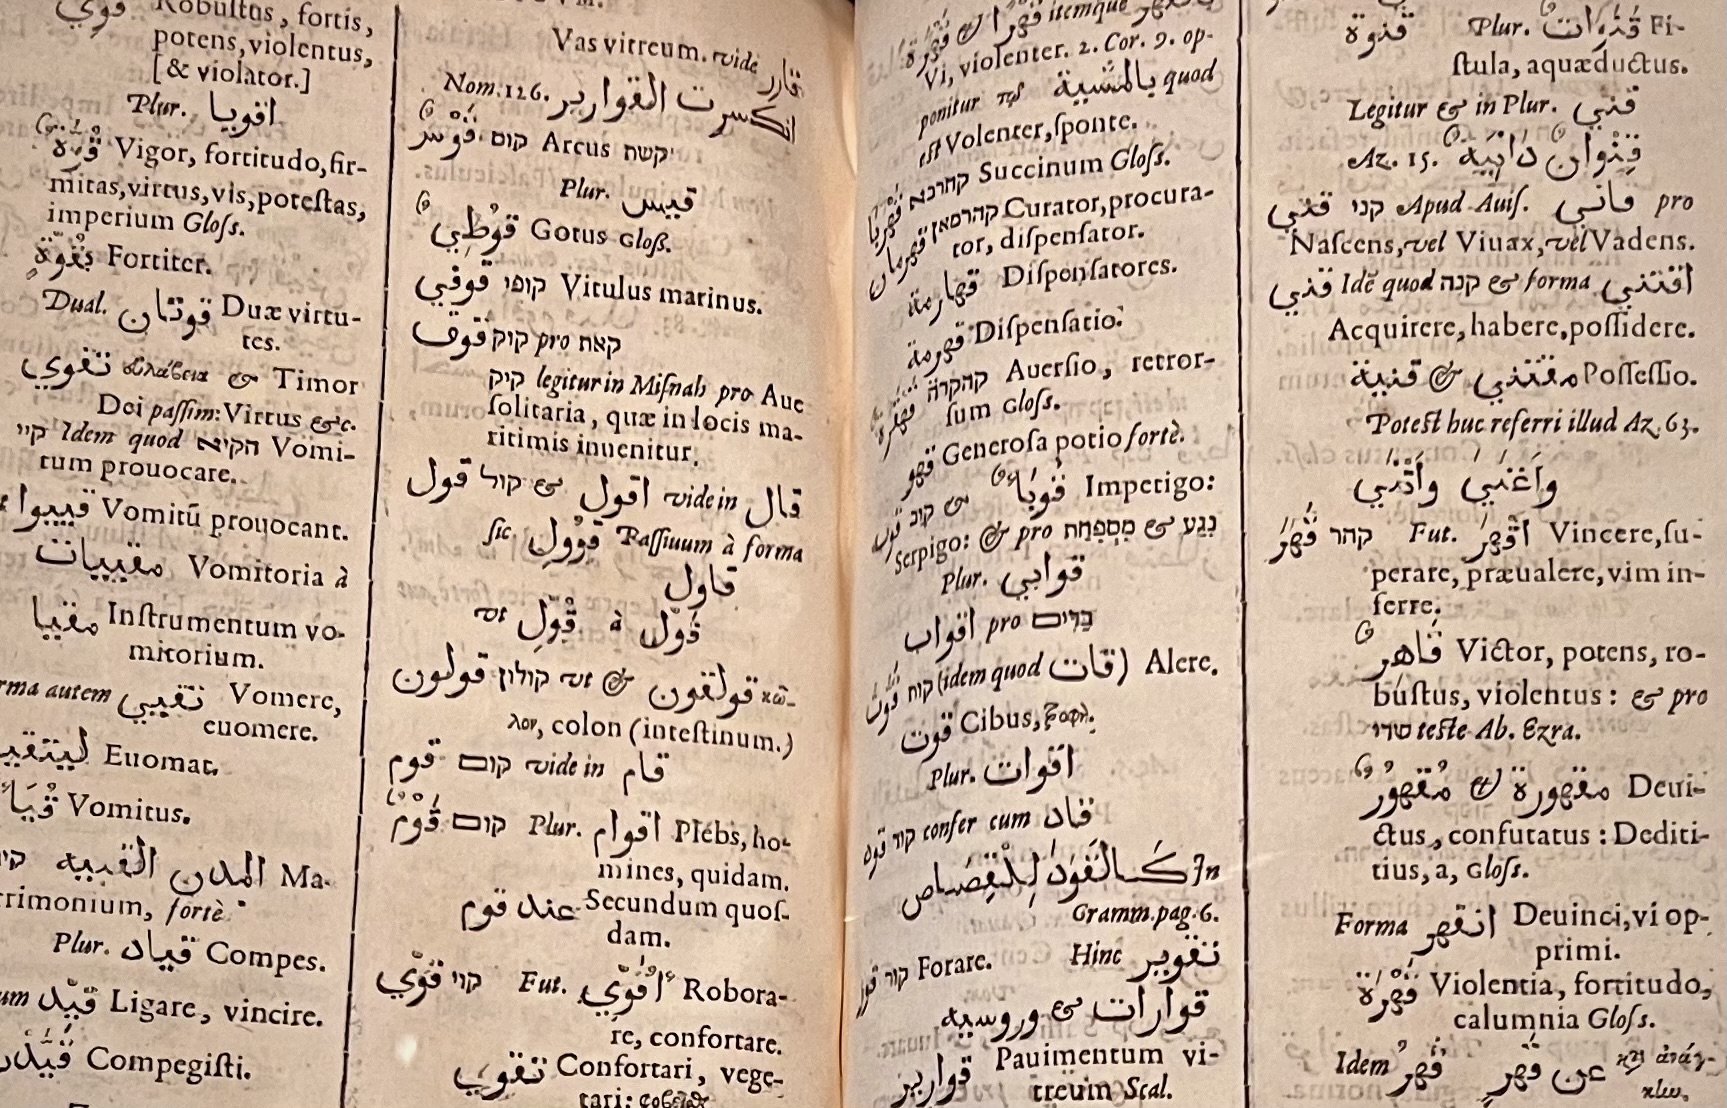 Robustus, fortis,
potens, violentus,
[& violator.]
Plur. اقويا
قوّة Vigor, fortitudo, fir-
mitas, virtus, vis, potestas,
imperium Gloss.
بقُوّةٍ Fortiter.
Dual. قوتان Duæ virtu-
tes.
تقوي ευλάβεια & Timor
Dei passim: Virtus &c.
קיי Idem quod הקיא Vomi-
tum prouocare.
قييبوا Vomitū prouocant.
مقيييات Vomitoria à
مقيا Instrumentum vo-
mitorium.
forma autem تقيي Vomere,
euomere.
Euomat.
Vomitus.
المدن القبيه Ma-
trimonium, fortè
Plur. قياد Compes.
قيّد Ligare, vincire.
Compegisti.
Vas vitreum. vide قارر
Nom. 126. انكسرت القوارير
יקשת קוס قَوْس Arcus
Plur. قيس
قوُطِي Gotus Gloss.
قوفي קופי Vitulus marinus.
قوق קוק pro קאת
קיק legitur in Misnah pro Aue
solitaria, quæ in locis ma-
ritimis inuenitur.
قول קול & اقول vide in قال
sic قِوُولِ Passiuum à forma
قاول
vt قُوِّلِ à قَوّل
قولون קולון vt & قولقون κω-
λον, colon (intestinum.)
قوم קום vide in قام
قَوْم קום Plur. اقوام Plebs, ho-
mines, quidam.
عند قوم Secundum quos-
dam.
قَوّي קוי Fut. اُقَوِّي Robora-
re, confortare.
تقوي Confortari, vege-
tari:
قهرًا & itemque
Vi, violenter. 2. Cor. 9. op-
ponitur بالمشيية quod
est Volenter, sponte.
קהרבא Succinum Gloss.
قهرمان קהרמאן Curator, procura-
tor, dispensator.
قهارمة Dispensatores.
قهرمة Dispensatio.
קהקרה Auersio, retror-
sum Gloss.
قهو Generosa potio fortè.
קוב & قُوبَا Impetigo:
Serpigo: & pro מִסְפַּחַת & נֶגַע
Plur. قوابي
اقواب pro בַּדִּים
קות (idem quod قات) Alere.
قوت Cibus, τροφή.
Plur. اقوات
קוד confer cum قاد
كالقَوَد لِلْقِصَاص In
Gramm. pag. 6.
קור Forare. Hinc تقوير
قوارات & وروسيه
قوارير Pauimentum vi-
treum Scal.
قنوة Plur. قَنَوات Fi-
stula, aquæductus.
Legitur & in Plur. قني
Az. 15. قِنْوان دَانِيَة
قني קני Apud Auis. قاني pro
Nascens, vel Viuax, vel Vadens.
قني Idē quod קנה & forma اقتني
Acquirere, habere, possidere.
قنية & مقتني Possessio.
Potest huc referri illud Az. 63.
واَغْنَي واَقْنَي
قَهَر קהר Fut. اقْهَر Vincere, su-
perare, præualere, vim in-
ferre.
قَاهر Victor, potens, ro-
bustus, violentus: & pro
שרי teste Ab. Ezra.
مُقهور & مقهورة Deui-
ctus, confutatus: Dediti-
tius, a, Gloss.
Forma انقهر Deuinci, vi op-
primi.
قَهْرَة Violentia, fortitudo,
calumnia Gloss.
Idem قَهْر عن قَهْرٍ κατ᾽ ἀνάγ-
κην.